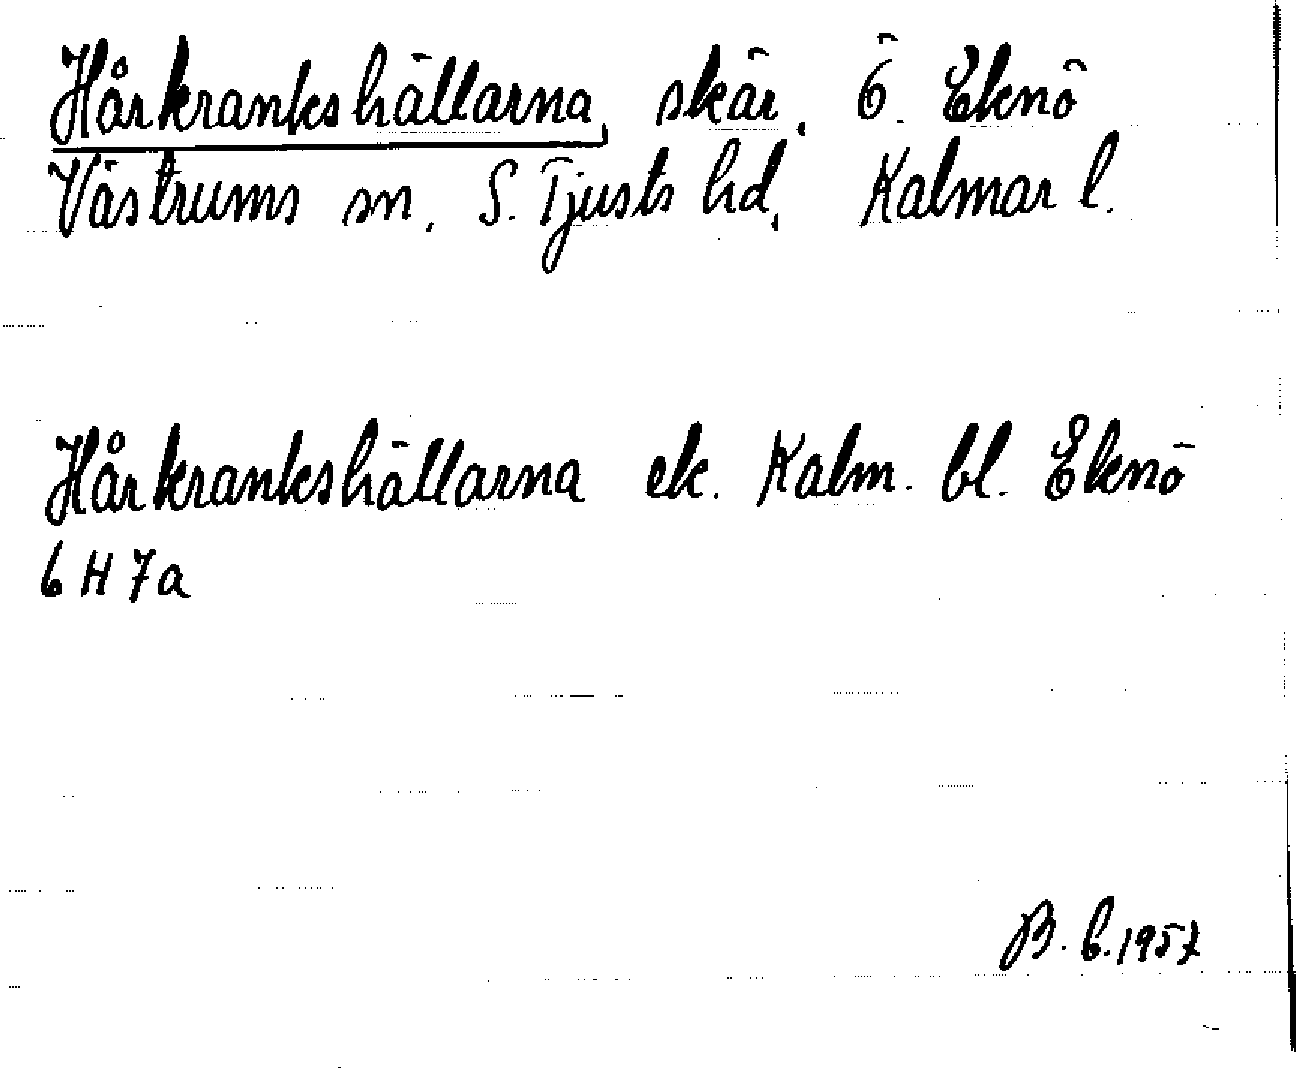 Hårkrankshällarna, skär, ö. Eknö
Västrums sn, S. Tjusts hd, Kalmar l.
Hårkrankshällarna ek. Kalm. bl. Eknö
6 H 7a
B. L. 1957